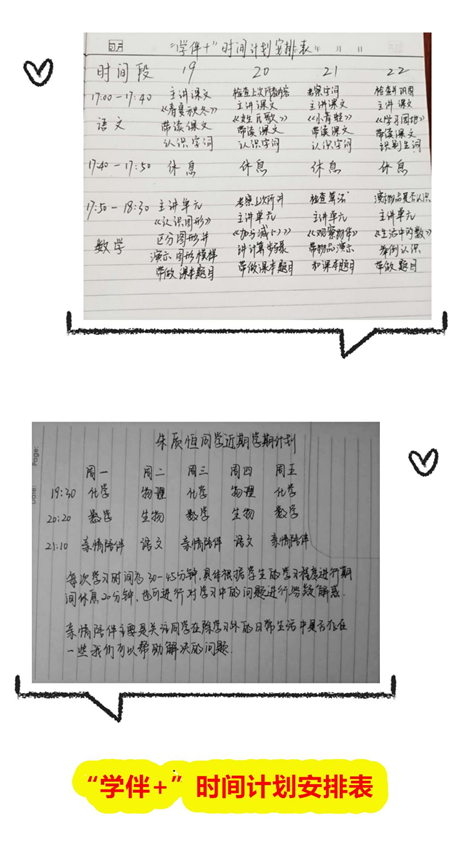 "学伴+"时间计划安排表 年 月 日
时间段 19 20 21 22
17:00-17:40 主讲课文 主讲课文 主讲课文 主讲课文
《春夏秋冬》 《姓氏歌》 《小青蛙》
语文 带读课文 带读课文 带读课文 带读课文
认识字词 认识字词 认识字词 识别生词
17:40-17:50 休息 休息 休息 休息
17:50-18:30 主讲单元 主讲单元 主讲单元 主讲单元
《认识图形》 《观察物体》 《生活中的数》
数学 区分图形并 带物品演示 举例认识
演示图形模样
带做课本题目 带做课本题目 和课本题目 带做题目
同学近期学期计划
周一 周二 周三 周四 周五
19:30 化学 物理 化学 物理 化学
20:20 数学 生物 数学 生物 数学
21:10 亲情陪伴 语文 亲情陪伴 语文 亲情陪伴
每次学习时间为30-45分钟,具体根据学生的学习程度进行,期
间休息20分钟,也可进行对学习中的问题进行答疑解惑.
亲情陪伴主要是关注同学在除学习外的日常生活中是否存在
一些我们可以帮助解决的问题.
"学伴+"时间计划安排表